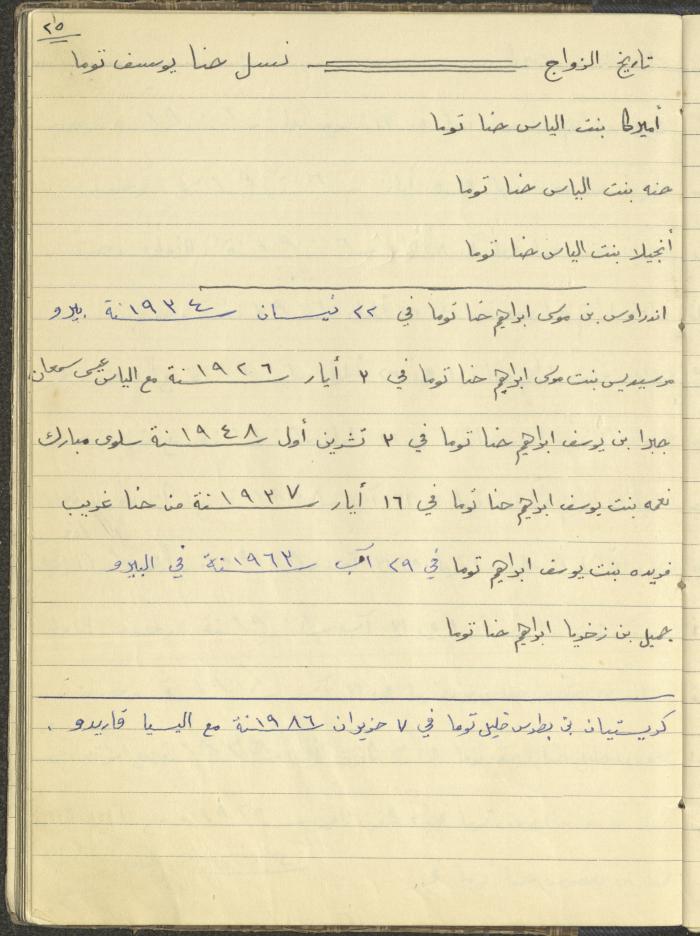 ٢٥
تاريخ الزواج نسل حنا يوسف توما
أميركا بنت الياس حنا توما
حنه بنت الياس حنا توما
أنجيلا بنت الياس حنا توما
اندراوس بن موسى ابراهيم حنا توما في ٢٢ نيسان سنة ١٩٣٤ بيرو
مرسيديس بنت موسى ابراهيم حنا توما في ٣ أيار سنة ١٩٢٦ مع الياس عيسى سمعان
جبرا بن يوسف ابراهيم حنا توما في ٣ تشرين أول سنة ١٩٤٨ سلوى مبارك
نعمه بنت يوسف ابراهيم حنا توما في ١٦ أيار سنة ١٩٣٧ من حنا غريب
فريده بنت يوسف ابراهيم توما في ٢٩ آب سنة ١٩٦٣ في البيرو
جميل بن زخريا ابراهيم حنا توما
كريستيان بن بطرس خليل توما في ٧ حزيران سنة ١٩٨٦ مع اليسيا فاريدو .